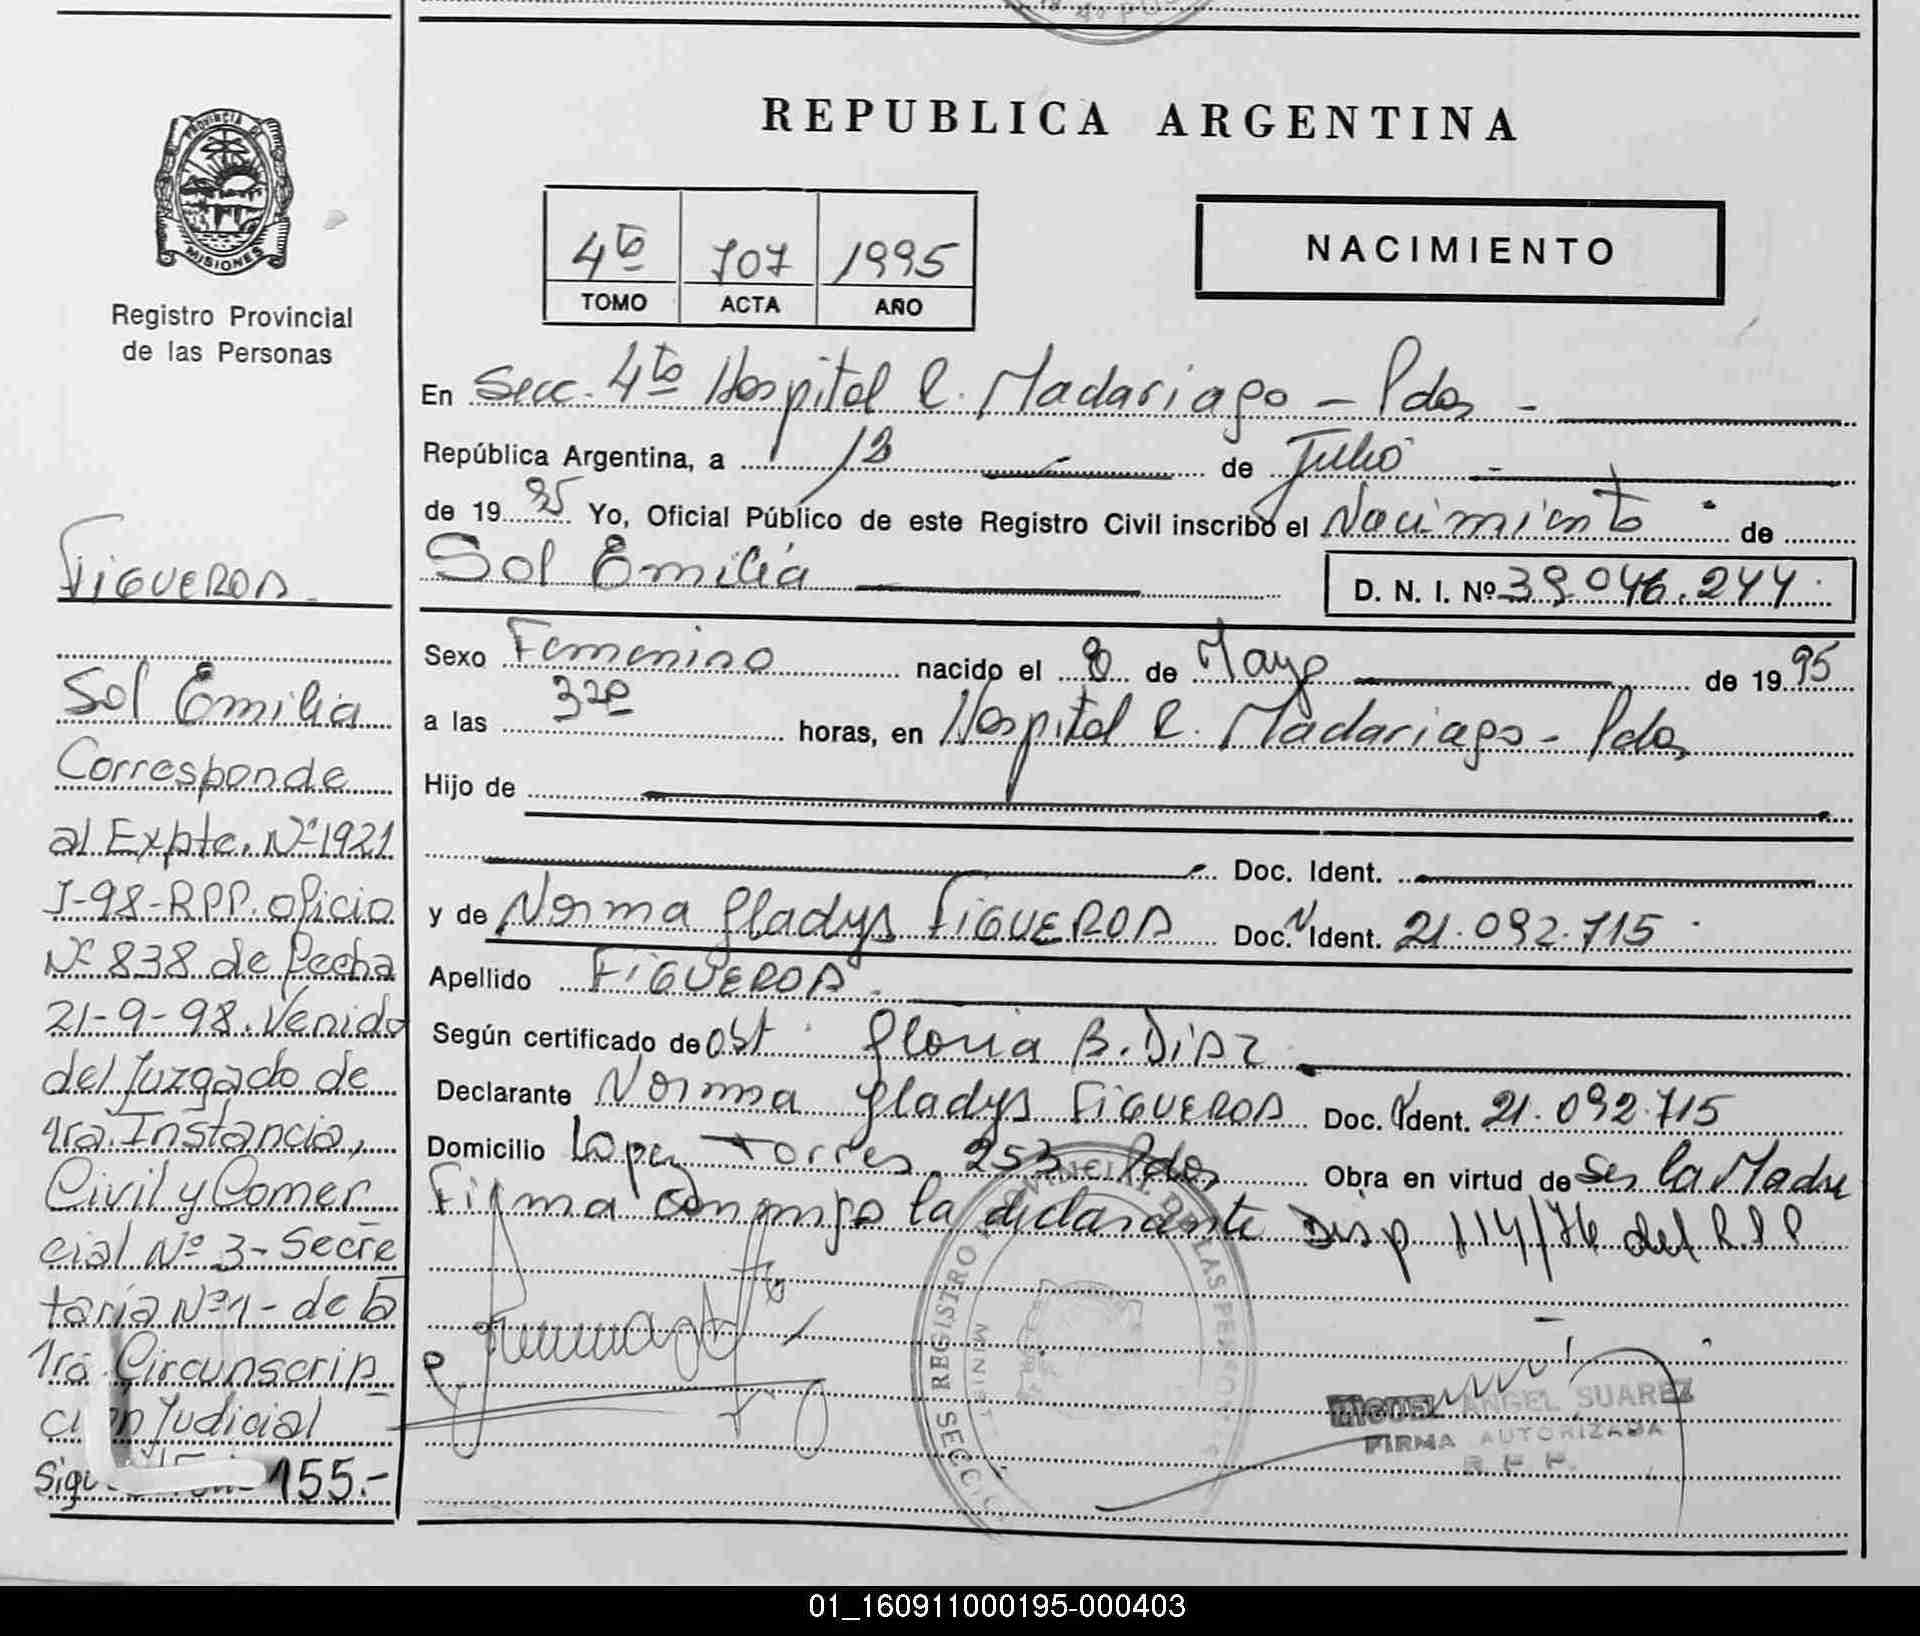 REPUBLICA ARGENTINA
PROVINCIA DE
MISIONES
Registro Provincial
de las Personas
4to 707 1995
TOMO ACTA AÑO
NACIMIENTO
En Secc. 4to Hospital R. Madariaga - Pdas -
República Argentina, a 13 de Julio
de 19 95 Yo, Oficial Público de este Registro Civil inscribo el Nacimiento de
Sol Emilia D. N. I. Nº 39.046.244.
Sexo Femenino nacido el 8 de Mayo de 19 95
a las 3 20 horas, en Hospital R. Madariaga - Pdas
Hijo de
Doc. Ident.
y de Norma Gladys FIGUEROA Doc. Ident. 21.092.715.
Apellido FIGUEROA.
Según certificado de Obst. Gloria B. Diaz
Declarante Norma Gladys FIGUEROA Doc. Ident. 21.092.715
Domicilio Lopez Torres 253 Pdas Obra en virtud de Ser la Madre
Firma conmigo la declarante Disp 114/76 del R.P.P.
REGISTRO PROVINCIAL DE LAS PERSONAS
SECC.
MIGUEL ANGEL SUAREZ
FIRMA AUTORIZADA
R. P. P.
FIGUEROA.
Sol Emilia
Corresponde
al Expte. Nº 1921
J-98-RPP. oficio
Nº 838 de fecha
21-9-98. Venido
del Juzgado de
1ra. Instancia,
Civil y Comer
cial Nº 3 - Secre
taria Nº 1 - de la
1ra. Circunscrip
ción Judicial
155.-
01_160911000195-000403